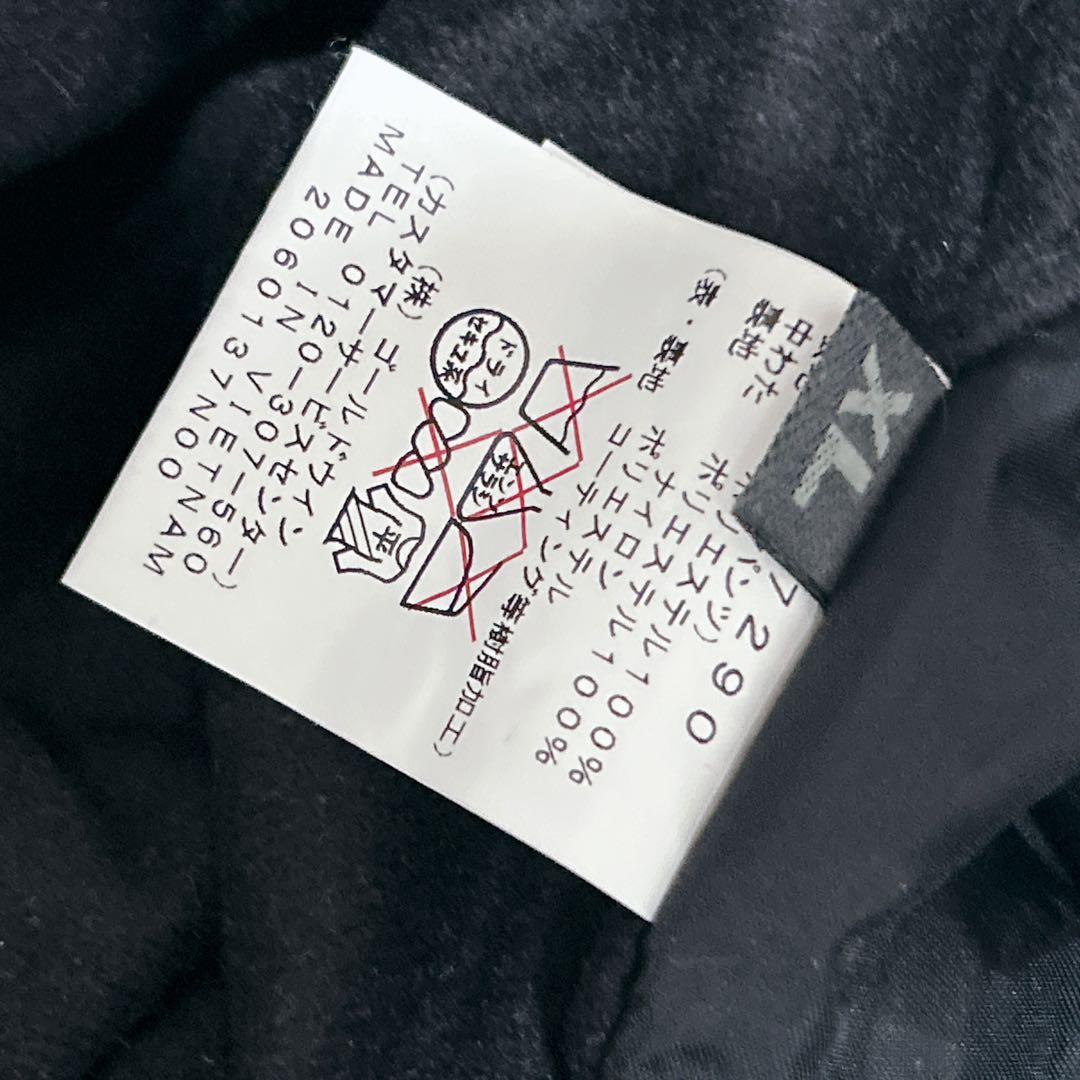 XL
7290
パンツ)
中わた ポリエステル100%
裏地 ポリエステル100%
(表・裏地 コーティング等樹脂加工)
ドライ
セキユ系
エンソ
サラシ
平
(株) ゴールドウイン
(カスタマーサービスセンター)
TEL 0120-307-560
MADE IN VIETNAM
2060137N00